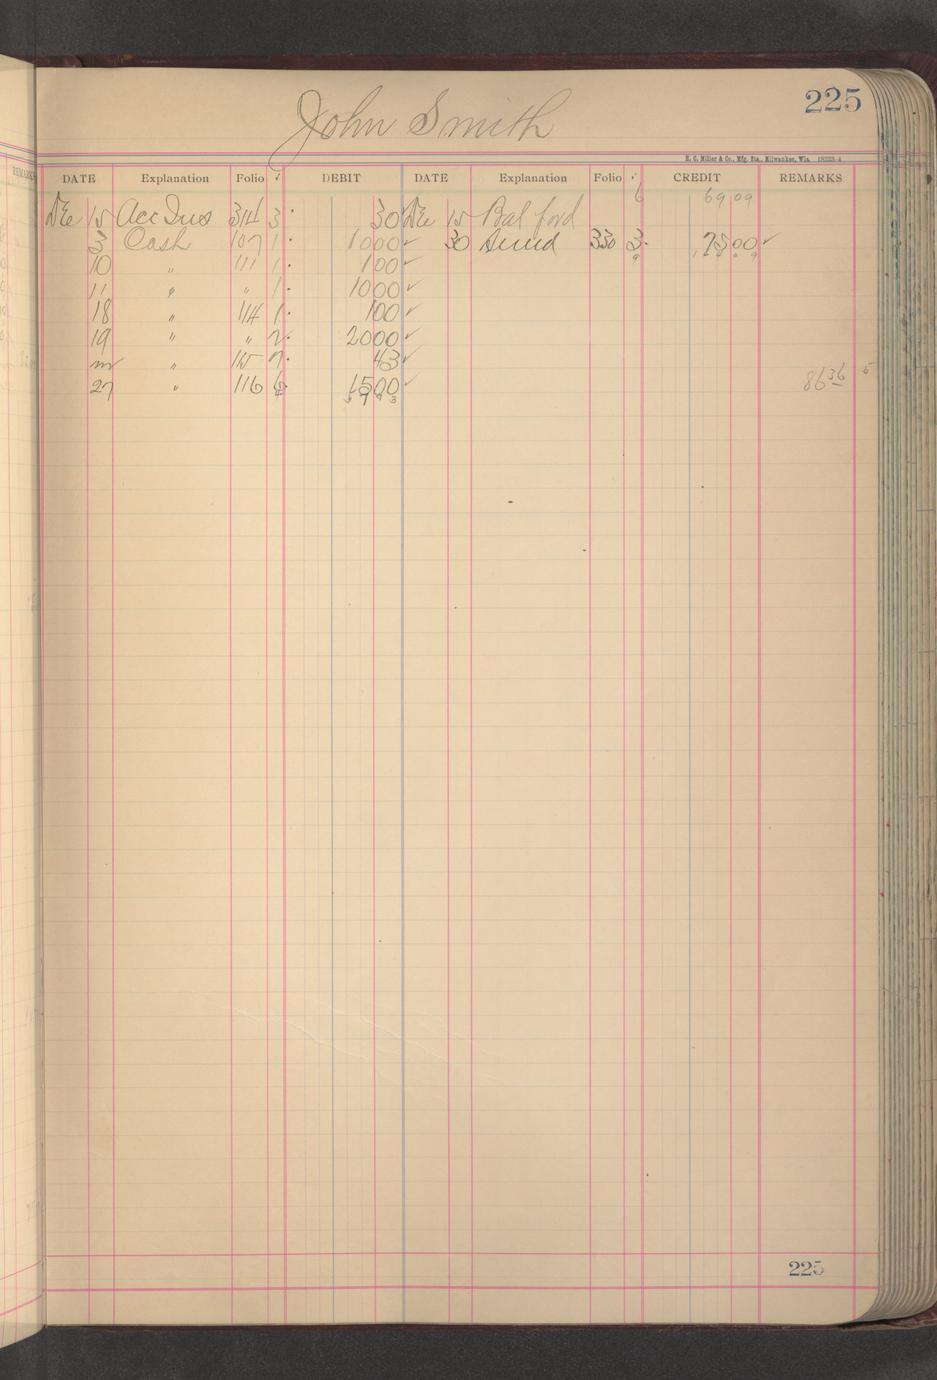 225
John Smith
H. C. Miller & Co., Mfg. Sta., Milwaukee, Wis.
DATE Explanation Folio ✓ DEBIT DATE Explanation Folio ✓ CREDIT REMARKS
6 69 09
15 Acc 314 3 30 ✓ 15 Bal ford
3 Cash 107 1 1000 ✓ 30 330 3 7500 ✓
10 " 111 1 100 ✓
11 " " 1 1000 ✓
18 " 114 1 100 ✓
19 " " 2 2000 ✓
" 115 7 43 ✓
27 " 116 6 1500 ✓ 86 36 5
225